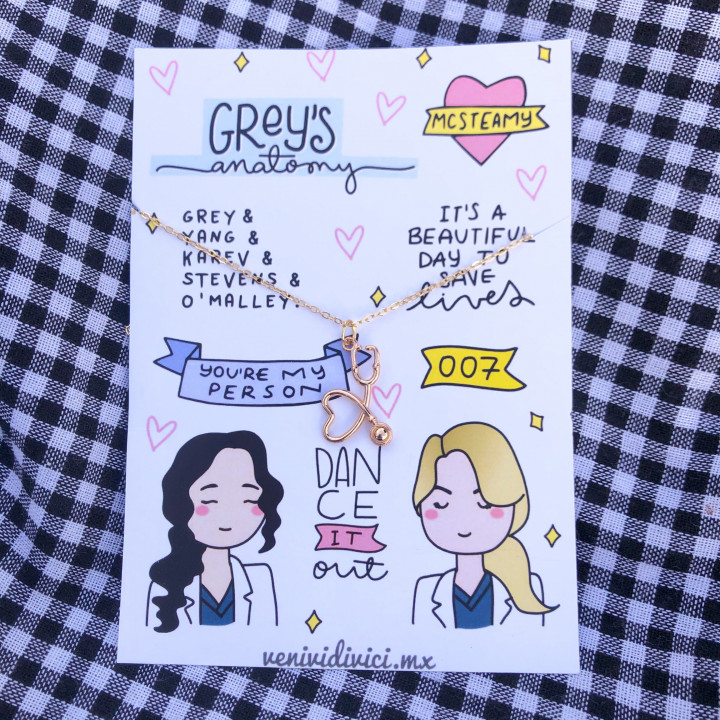 GREY'S
anatomy
MCSTEAMY
GREY &
YANG &
KAREV &
STEVENS &
O'MALLEY.
IT'S A
BEAUTIFUL
DAY TO
SAVE
lives
YOU'RE MY
PERSON
007
DAN
CE
IT
out
venividivici.mx